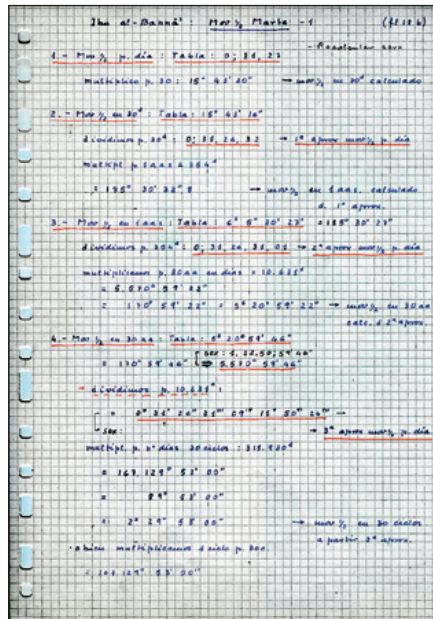 Ibn al-Bannā' : Mov ½ Marte - 1 (fl 18 b)
- Recalcular
1.- Mov ½ p. día : Tabla : 0; 31, 27
multiplico p. 30 : 15° 43' 30" → mov ½ en 30ᵈ calculado
2.- Mov ½ en 30ᵈ : Tabla : 15° 43' 16"
dividimos p. 30ᵈ : 0; 31, 26, 32 → 1ª aprox mov ½ p. día
multipl. p 1 aas a 354ᵈ
= 185° 30' 32" 8 → mov ½ en 1 aas. calculado
d. 1ª aprox.
3.- Mov ½ en 1 aas : Tabla : 6ˢ 5° 30' 27" = 185° 30' 27"
dividimos p. 354ᵈ : 0; 31, 26, 31, 01 → 2ª aprox mov ½ p. día
multiplicamos p. 30 aa en días = 10.631ᵈ
= 5.570° 59' 22"
= 170° 59' 22" = 5ˢ 20° 59' 22" → mov ½ en 30 aa
calc. d 2ª aprox.
4.- Mov ½ en 30 aa : Tabla : 5ˢ 20° 59' 46"
= 170° 59' 46" ⇒ 5.570° 59' 46"
dividimos p. 10.631ᵈ :
→ 3ª aprox mov ½ p. día
multipl. p. nº días 30 ciclos : 318.930ᵈ
= 167.129° 53' 00"
= 89° 53' 00"
= 2ˢ 29° 53' 00" → mov ½ en 30 ciclos
a partir 3ª aprox.
· o bien multiplicamos 1 ciclo p. 300
= 167.129° 53' 00"